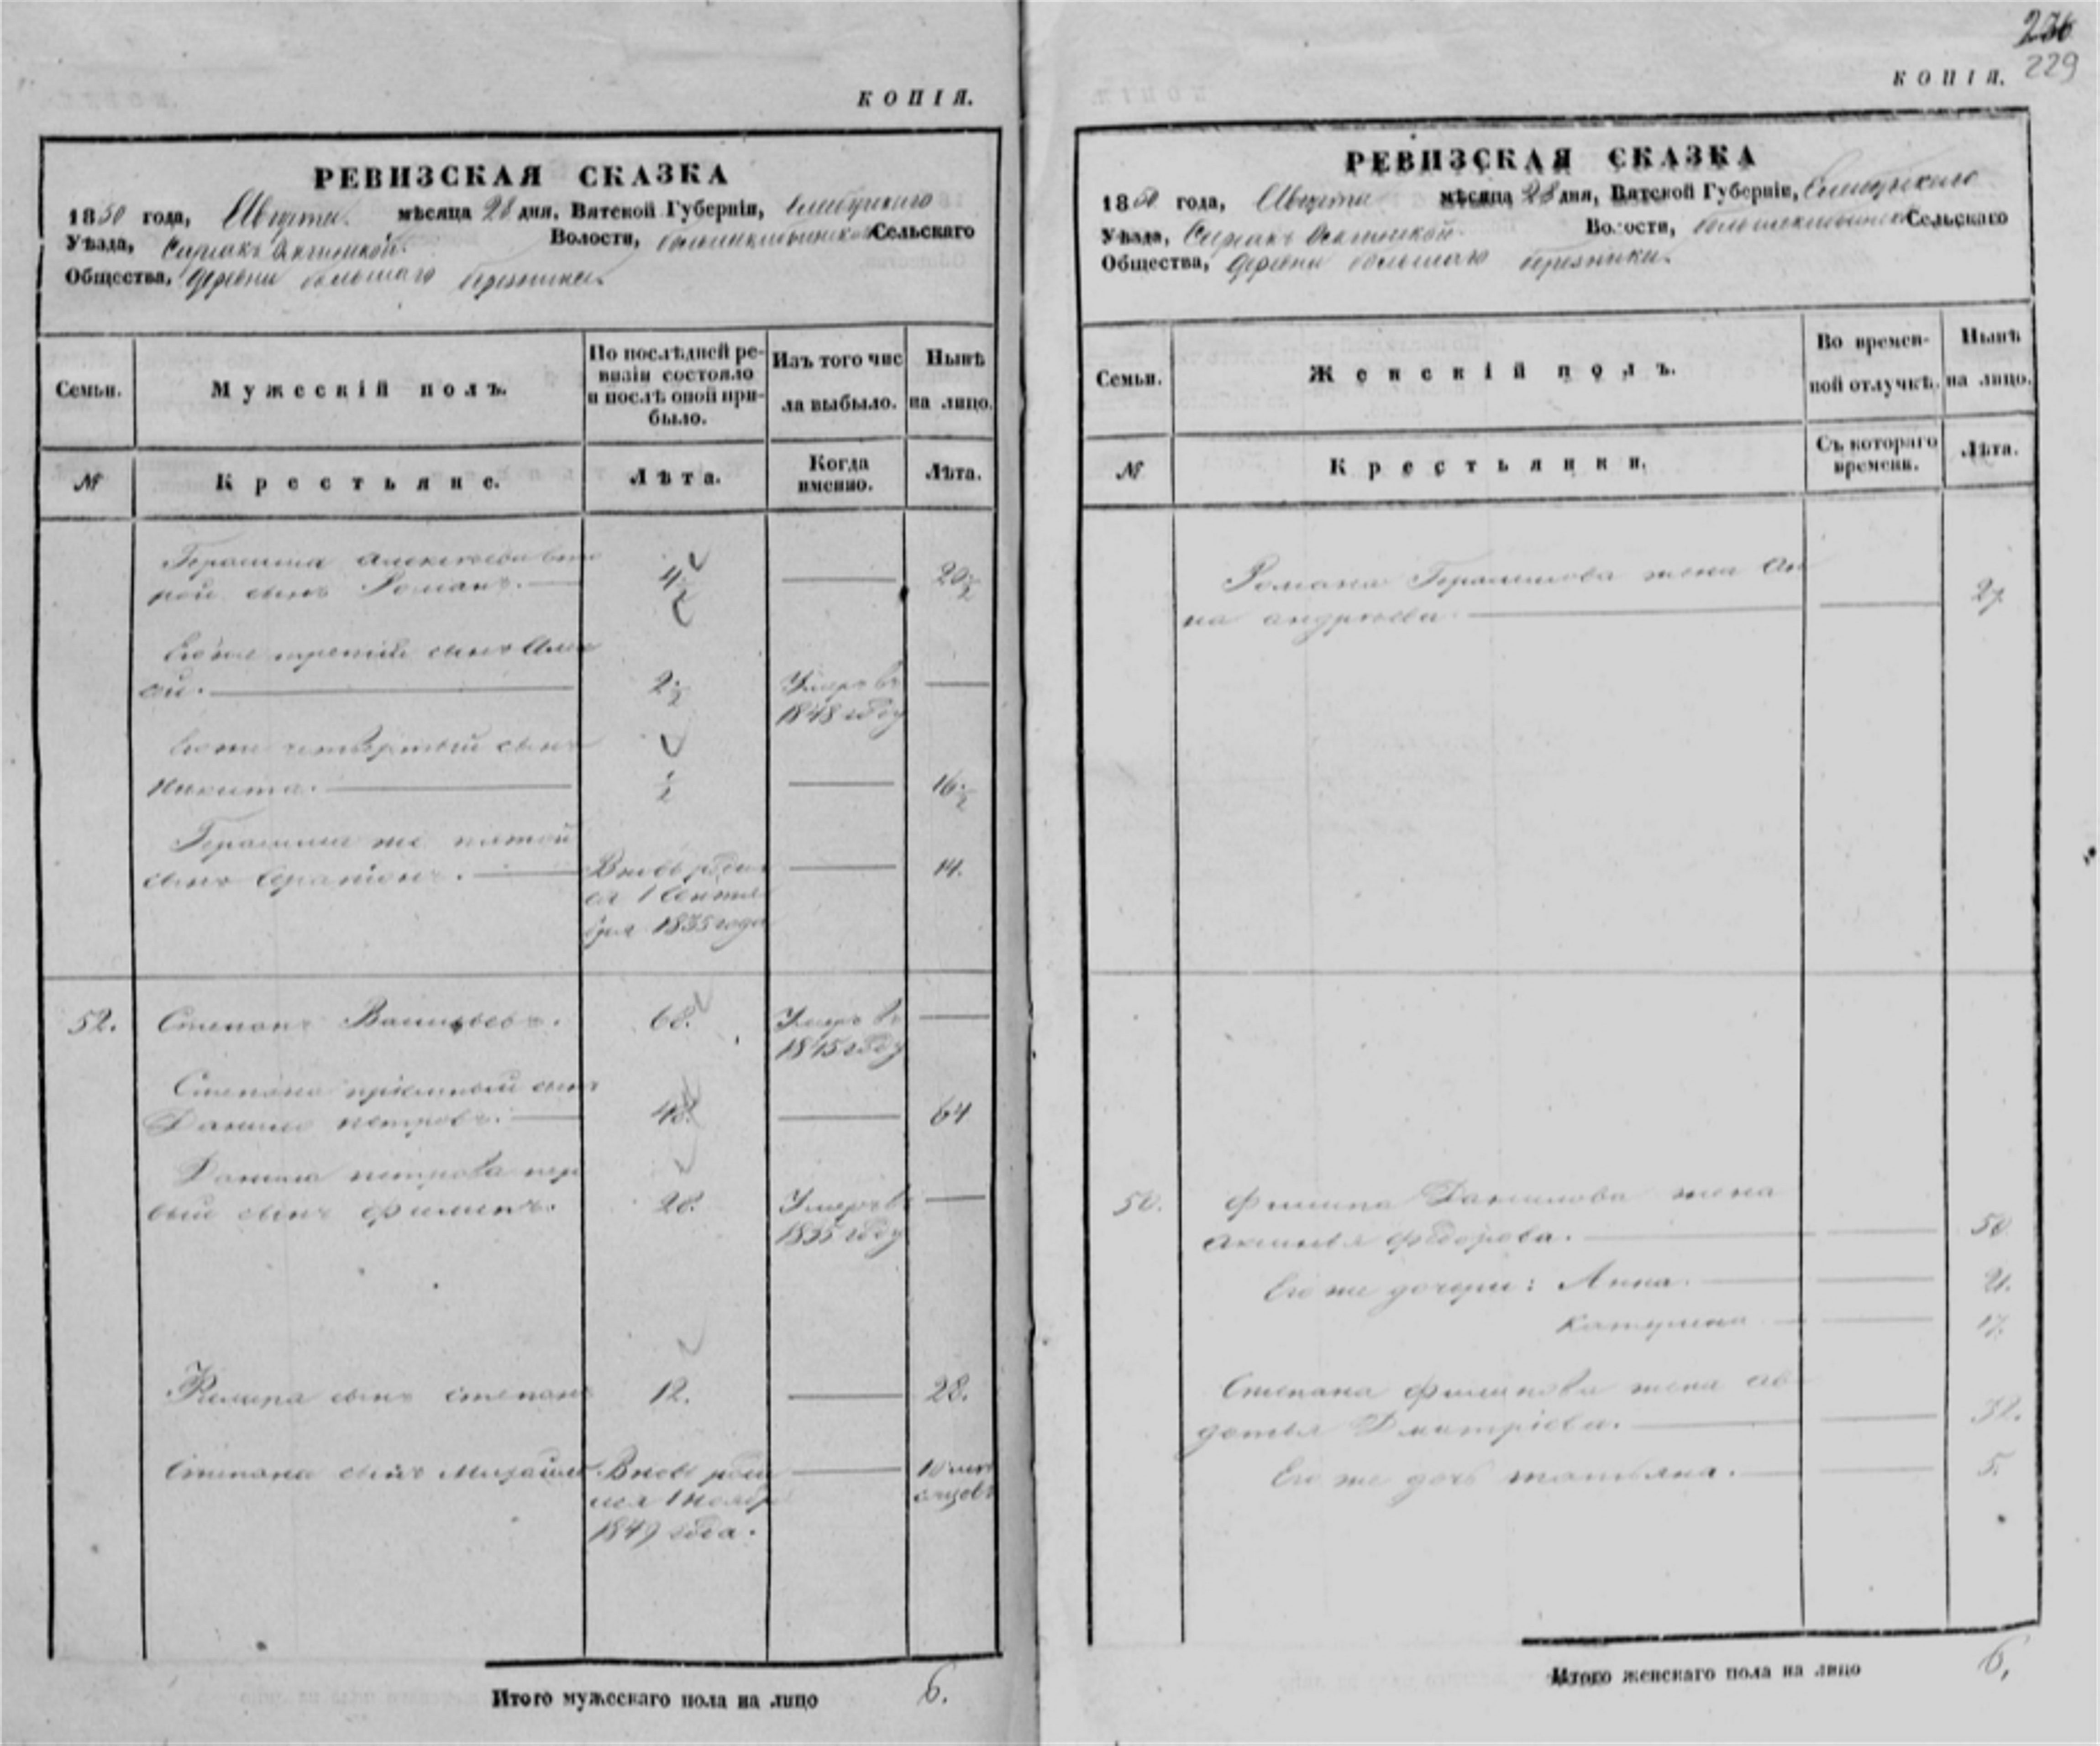 236
229
КОПІЯ.
РЕВИЗСКАЯ СКАЗКА
1850 года, Августа мѣсяца 28 дня, Вятской Губерніи, Елабужскаго
Уѣзда, Волости, Сельскаго
Общества, деревни большаго березника
Семьи.
Мужескій полъ.
По послѣдней ре-
визіи состояло
и послѣ оной при-
было.
Изъ того чис
ла выбыло.
Нынѣ
на лицо.
№
Крестьяне.
Лѣта.
Когда
именно.
Лѣта.
Герасима Алексѣева вто
рой сынъ Романъ. 4½ 20½
Его же третій сынъ Алек
сѣй. 2½ Умеръ въ
1848 году
Его же четвертый сынъ
Никита. ½ 16½
Герасима же пятой
сынъ 14.
Вновь родил
ся 1 Сентя
бря 1835 года
52. Степанъ Васильевъ. 68. Умеръ въ
1845 году
Степана пріемный сынъ
Данило Петровъ. 48. 64
Данила Петрова пер
вый сынъ Филипъ. 28. Умеръ въ
1835 году
Филипа сынъ Степанъ 12. 28.
Степана сынъ Михайло Вновь роди
лся 1 Ноябр 10 мѣ
сяцовъ
1849 года.
Итого мужескаго пола на лицо 6.
КОПІЯ.
РЕВИЗСКАЯ СКАЗКА
1850 года, Августа мѣсяца 28 дня, Вятской Губерніи, Елабужскаго
Уѣзда, Волости, Сельскаго
Общества, деревни большаго березника.
Семьи.
Женскій полъ.
Во времен-
ной отлучкѣ.
Нынѣ
на лицо.
№
Крестьянки.
Съ котораго
времени.
Лѣта.
Романа Герасимова жена Ан
на Андреева 27
Филипа Данилова жена
Аксинья Федорова. 50
Его же дочери: Анна. 21.
Катерина 17.
Степана Филипова жена Ав
дотья Дмитріева. 32.
Его же дочь Татьяна. 5.
Итого женскаго пола на лицо 6.